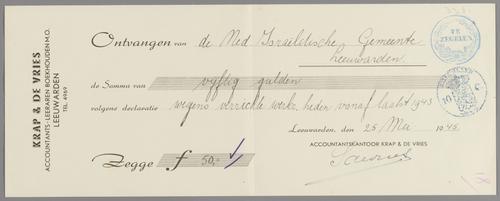 KRAP & DE VRIES
ACCOUNTANTS-LEERAREN BOEKHOUDEN M.O.
LEEUWARDEN
TEL. 4969
TE
ZEGELEN
Ontvangen van de Ned Israelitische Gemeente
Leeuwarden
de Somma van vijftig gulden
volgens declaratie wegens verrichte werkzheden vanaf laatst 1943
Leeuwarden, den 25 Mei 1945.
ACCOUNTANTSKANTOOR KRAP & DE VRIES
Zegge f 50,-